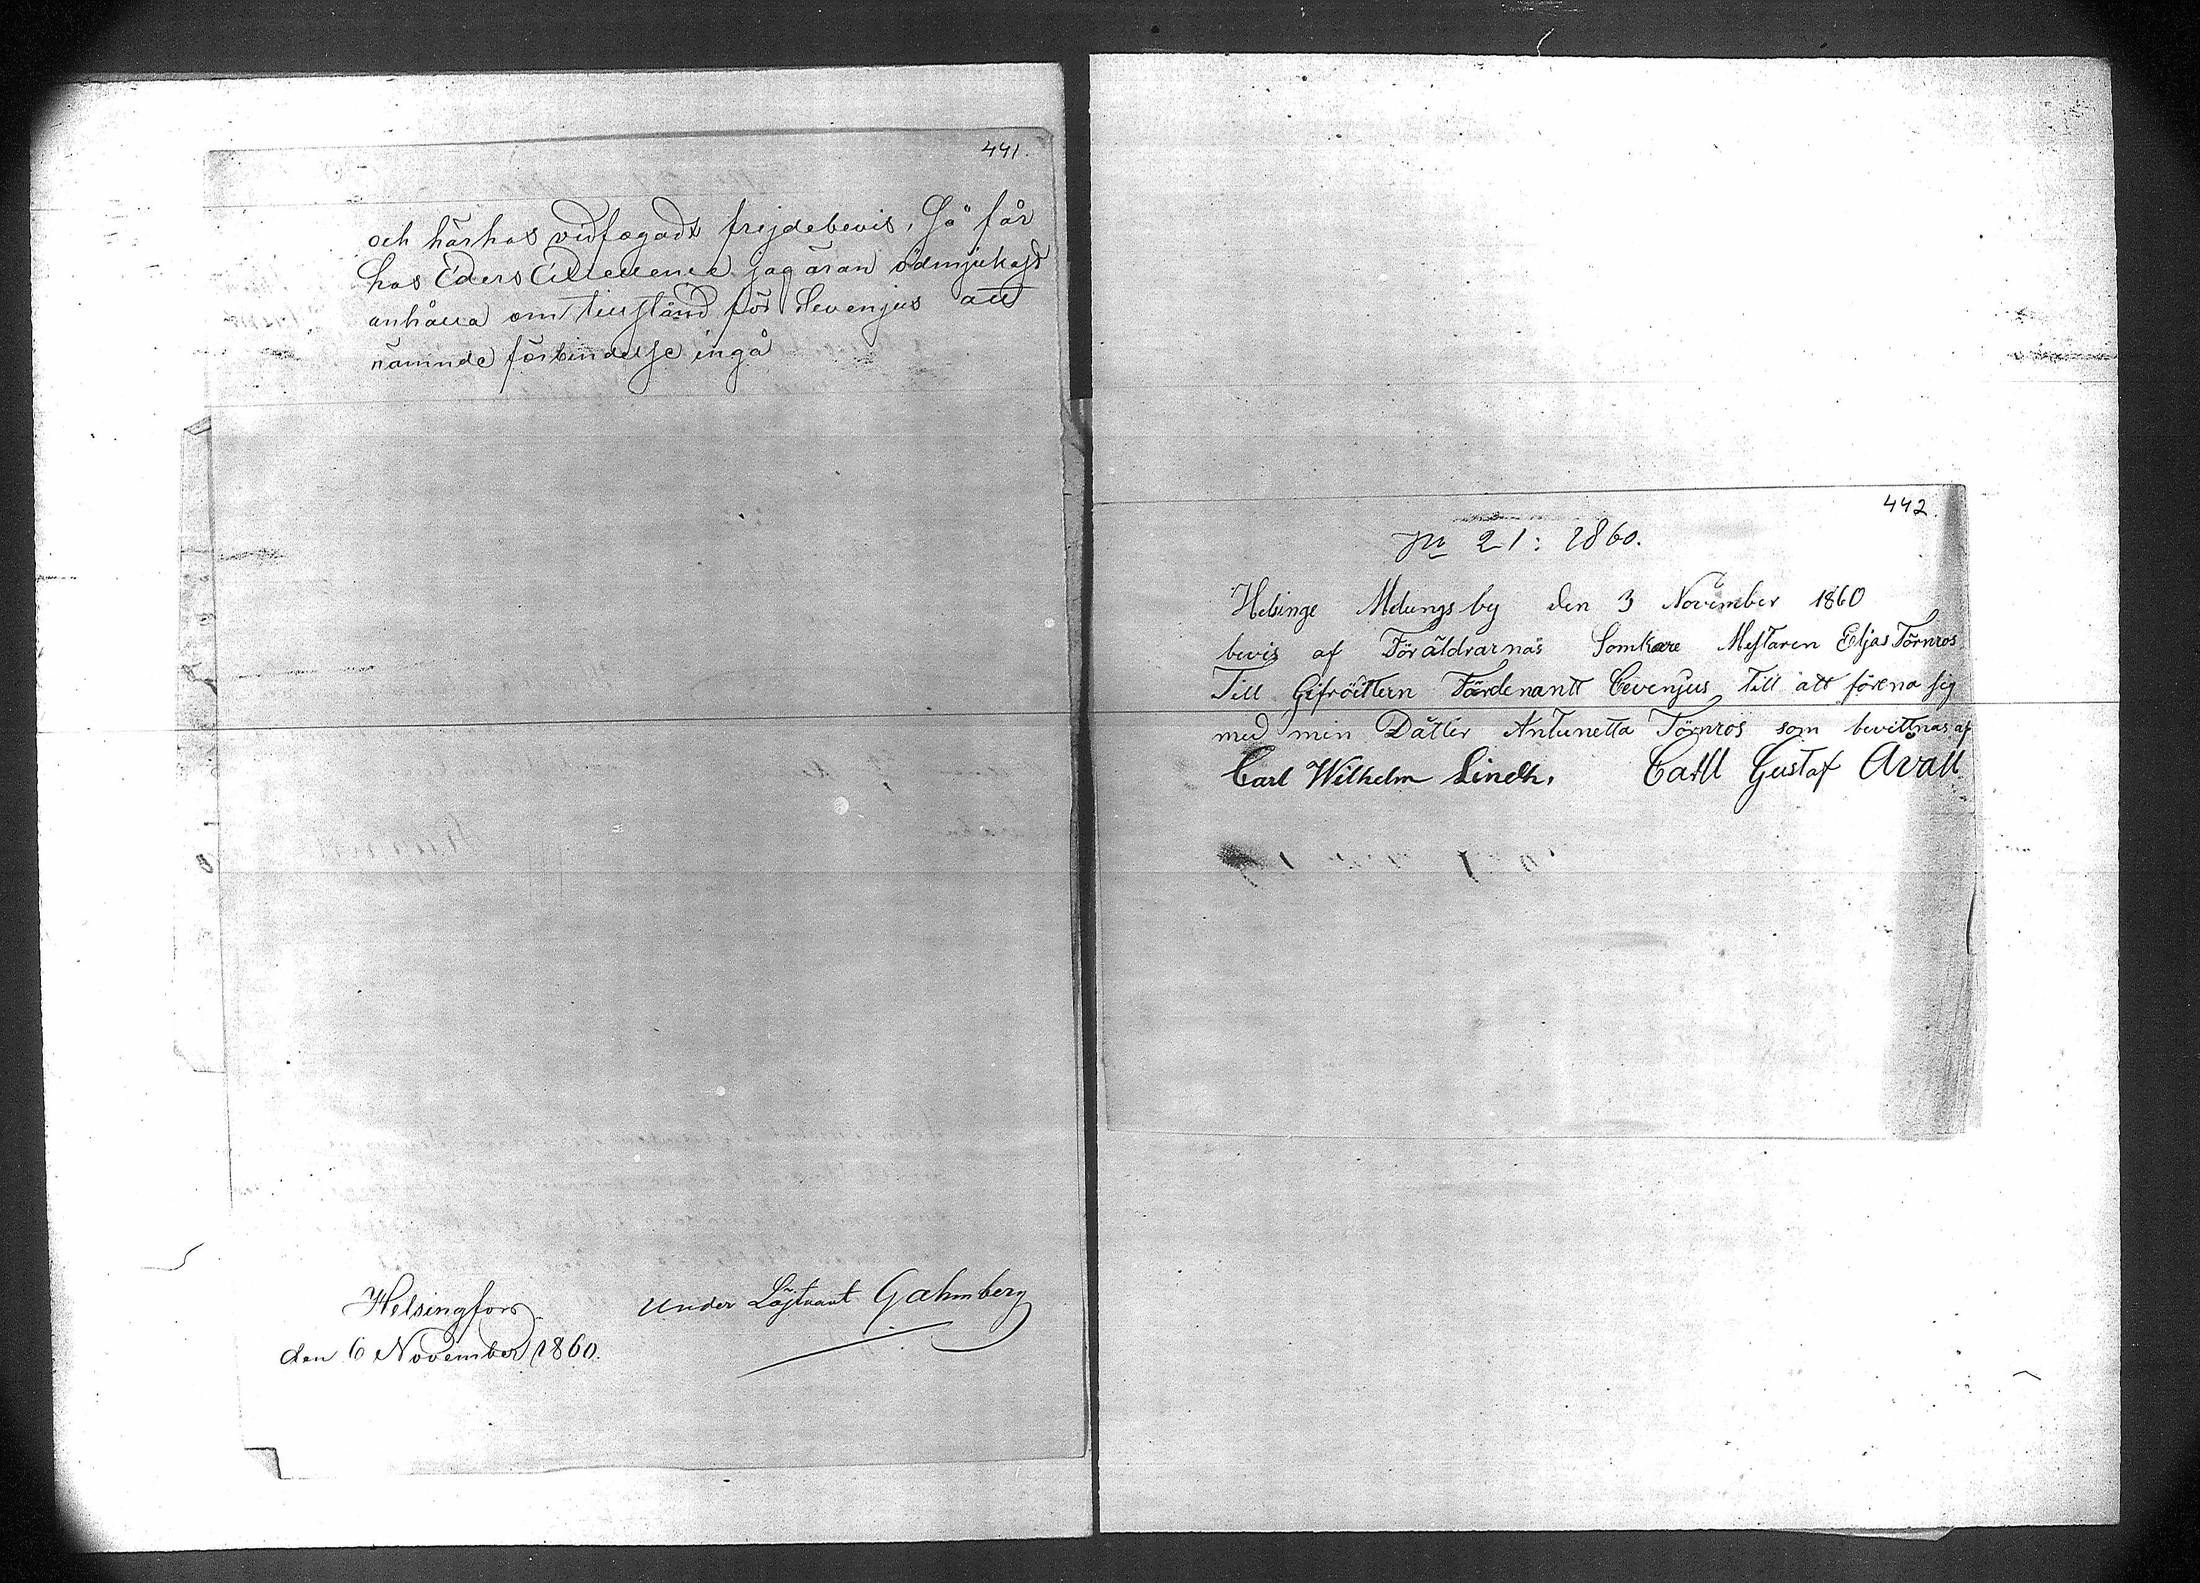 441.
och härhos vidfogadt frejdebevis, Så får
hos Eders Excellence jag äran ödmjukast
anhålla om tillstånd för Sevenjus att
nämnde förbindelse ingå
Helsingfors
den 6 November 1860.
Under Löjtnant Gahmberg
442.
No 21: 1860.
Helsinge Melungsby den 3 November 1860
bevis af Föräldrarnas Somkare Mestaren Eljas Törnros
Till Gifröittern Färdenantt Cevenjus till att förena sig
med min Datter Antunetta Törnros som bevittnas af
Carl Wilhelm Lindh, Carll Gustaf Avall